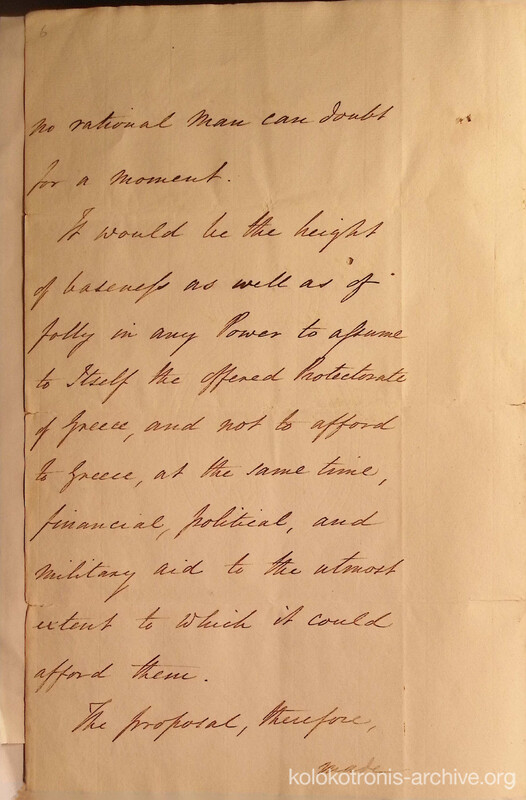 6
no rational man can doubt
for a moment.
It would be the height
of baseness as well as of
folly in any Power to assume
to Itself the offered Protectorate
of Greece, and not to afford
to Greece, at the same time,
financial, political, and
military aid to the utmost
extent to which it could
afford them.
The proposal, therefore,
made
kolokotronis-archive.org